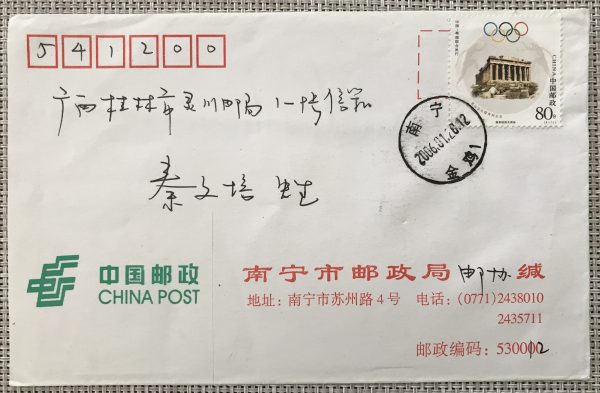 541200
CHINA 中国邮政
80分
广西桂林市灵川邮局1一号信箱
南宁
2006.01.26.12
秦文培 先生
中国邮政
CHINA POST
南宁市邮政局邮协缄
地址：南宁市苏州路4号 电话：(0771)2438010
2435711
邮政编码：530012